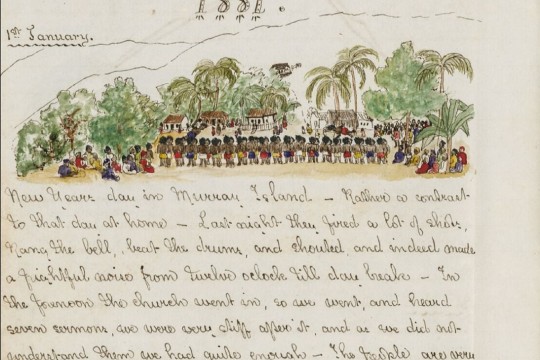 1881.
1st January.
New Years day in Murray Island – Rather a contrast
to that day at home – Last night they fired a lot of shots,
rang the bell, beat the drums, and shouted and indeed made
a frightful noise from twelve oclock till day break – In
the forenoon the church went in, so we went, and heard
seven sermons, we were very stiff after it, and as we did not
understand them we had quite enough – The people are very